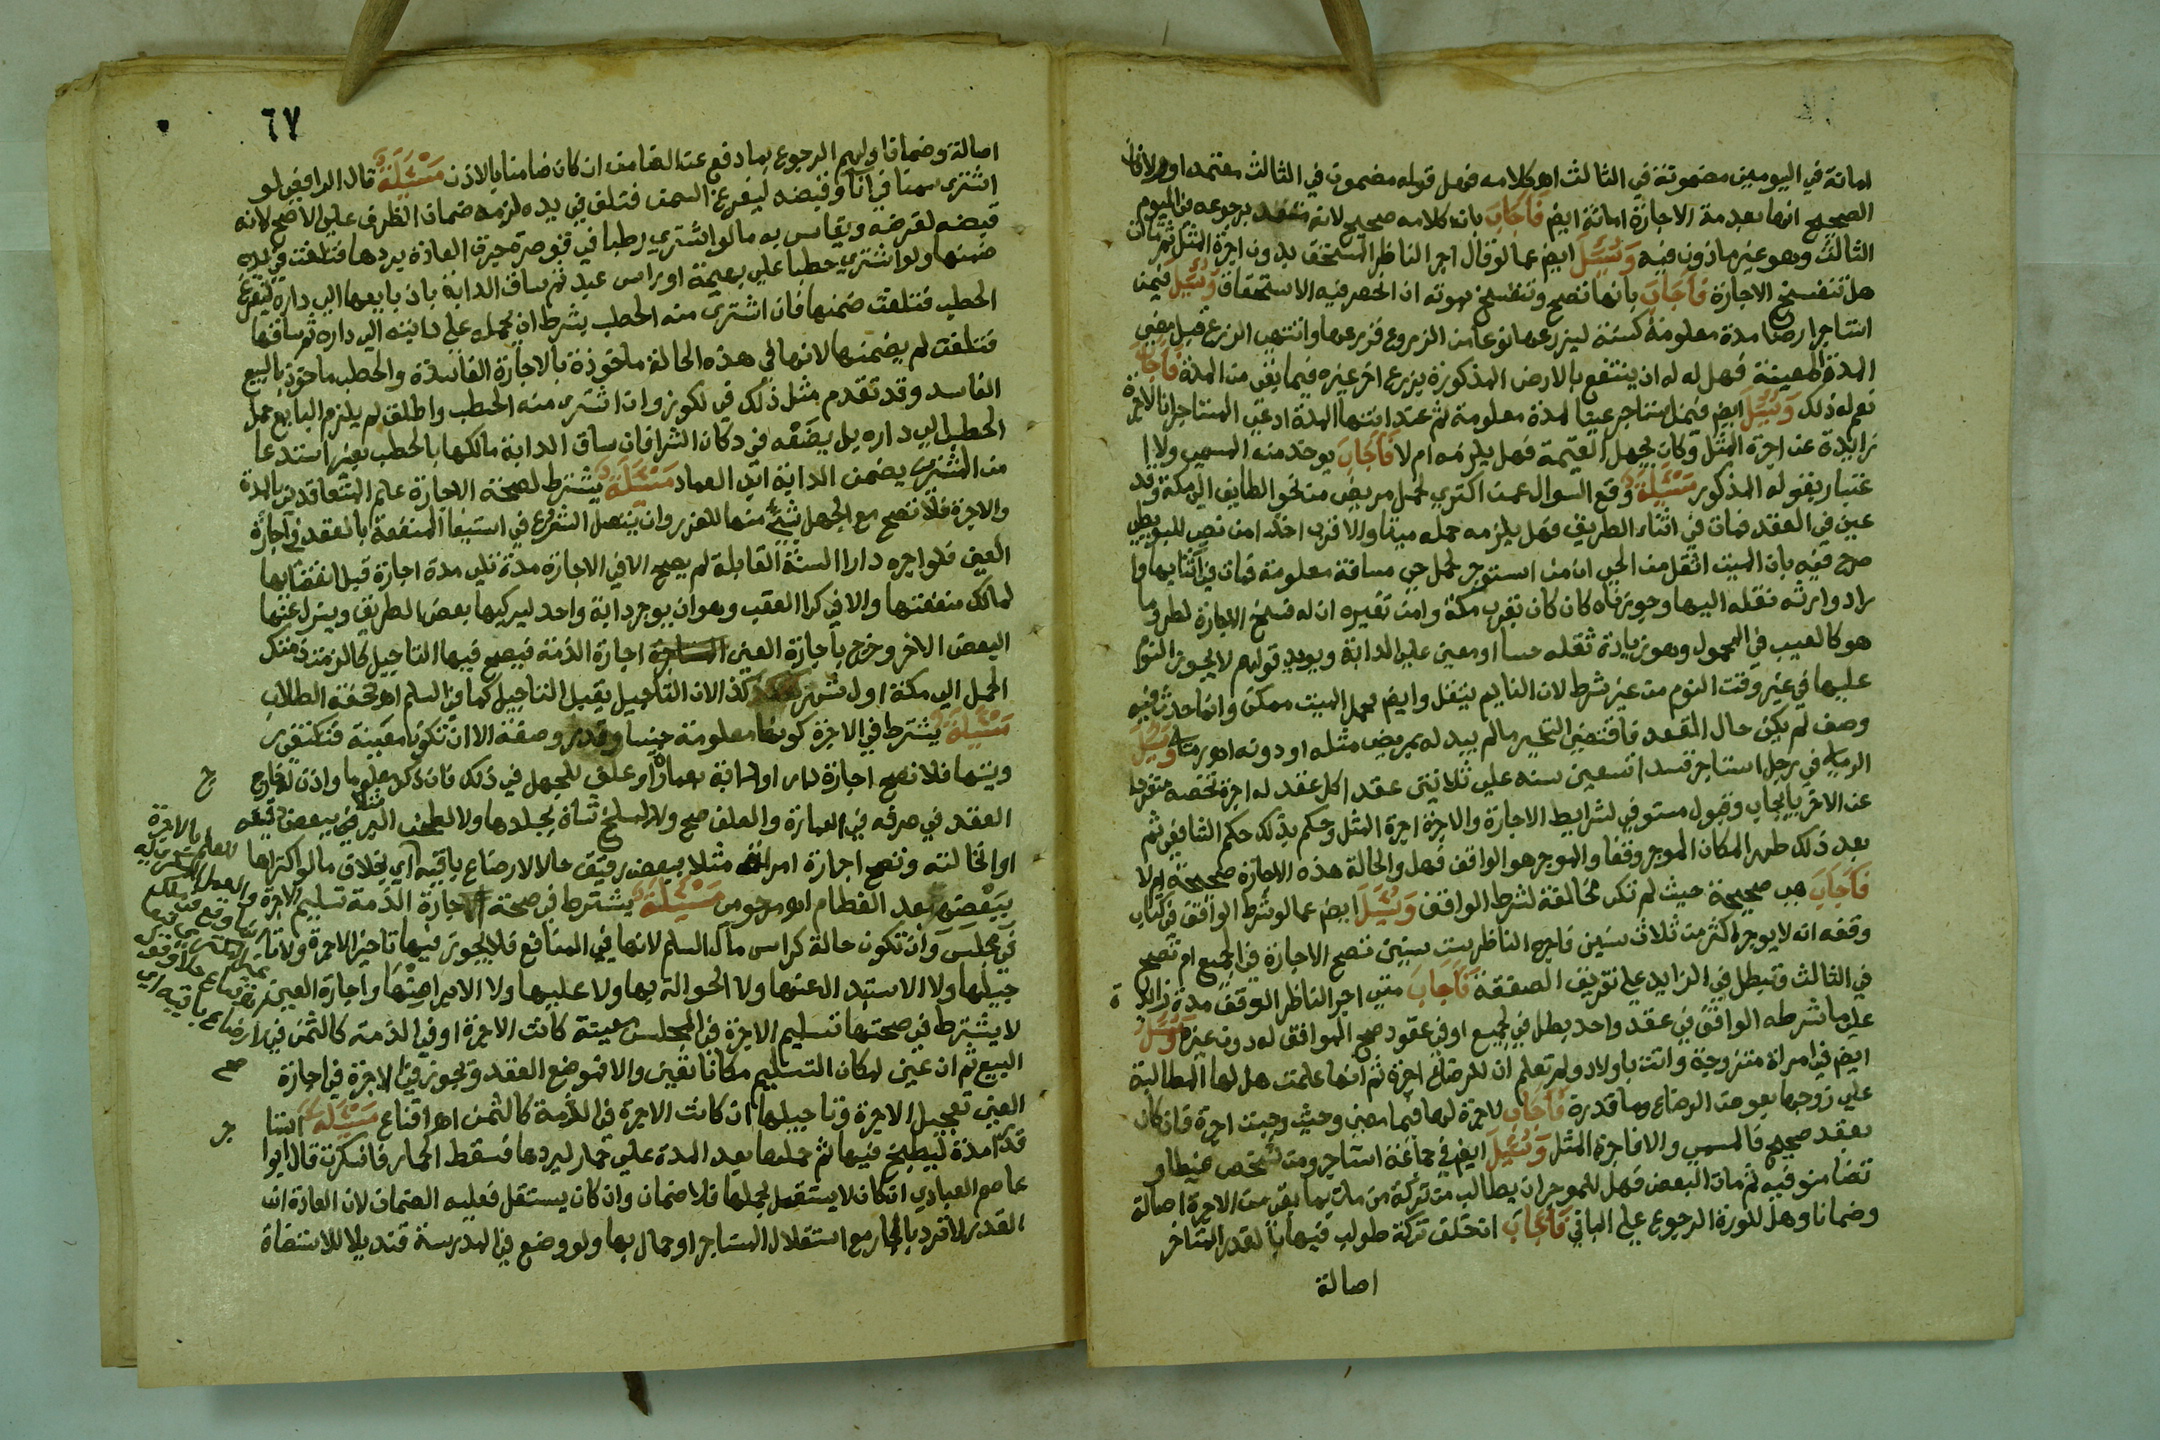 امانة في اليومين مضمونة في الثالث اهـ كلامه فهل قوله مضمون في الثالث معتمد او لا فان
الصحيح انها بعد مدة الاجارة امانة ايض فَأجَابَ بان كلامه صحيح لانه متعد برجوعه في اليوم
الثالث وهو غير ماذون فيه وَسُئِلَ ايض عما لو قال اجر الناظر المستحق بدون اجرة المثل ثم مات
هل تنفسخ الاجارة فَأجَابَ بانها تصح وتنفسخ بموته ان انحصر فيه الاستحقاق وَسُئِلَ فيمن
استاجر ارضا مدة معلومة كسنة ليزرعها نوعا من الزروع فزرعها وانتهى الزرع قبل مضي
المدة المعينة فهل له ان ينتفع بالارض المذكورة بزرع اخر غيره فيما بقي من المدة فَأجَابَ
نعم له ذلك وَسُئِلَ ايض فيمن استاجر عينا لمدة معلومة ثم عند انتها المدة ادعى المستاجر ان الاجرة
زايدة عن اجرة المثل وكان يجهل القيمة فهل يلزمه ام لا فَأجَابَ يوخذ منه المسمى ولا ا
عتبار بقوله المذكور مَسْئَلَةٌ وقع السوال عمن اكتري لحمل مريض من نحو الطايف الى مكة وقد
عين في العقد فمات في اثناء الطريق فهل يلزمه حمله ميتا والاقرب اخذا من نص للبويطي
صرح فيه بان الميت اثقل من الحي ان من استوجر لحمل حي مسافة معلومة فمات في اثنايها وا
راد وارثه نقله اليها وجوزناه كان كان بقرب مكة وامن تغيره ان له فسخ الاجارة لطرو ما
هو كالعيب في المحمول وهو زيادة ثقله حسا او معنى على الدابة ويويده قولهم لا يجوز النوم
عليها في غير وقت النوم من غير شرط لان النايم يثقل وايض يحمل الميت ممكن وانما حدث فيه
وصف لم يكن حال العقد فاقتضى التخيير ما لم يبدله بمريض مثله او دونه اهـ رملي وَسُئِلَ
الرملي في رجل استاجر قسدا تسعين سنه على ثلاثين عقد اكل عقد له اجرة تخصه متفردا
عن الاخر بايجاب وقبول مستوفي لشرايط الاجارة والاجرة اجرة المثل وحكم بذلك حكم الشافعي ثم
بعد ذلك ظهر المكان الموجر وقفا والموجر هو الواقف فهل والحالة هذه الاجارة صحيحة ام لا
فَأجَابَ هي صحيحة حيث لم تكن مخالفة لشرط الواقف وَسُئِلَ ايض عما لو شرط الواقف في كتاب
وقفه انه لا يوجر اكثر من ثلاث سنين فاجره الناظر ست سنين تصح الاجارة في الجميع ام تصح
في الثالث وتبطل في الزايد على تفريق الصفقة فَأجَابَ متى اجر الناظر الوقف مدة زايدة
على ما شرطه الواقف في عقد واحد بطل في الجميع او في عقود صح الموافق له دون غيره وَسُئِلَ
ايض في امراة متزوجة واتت باولاد ولم تعلم ان للرضاع اجرة ثم انها علمت هل لها المطالبة
على زوجها بعوض الرضاع وما قدره فَأجَابَ لا اجرة لها فيما مضى وحيث وجبت اجرة فان كان
بعقد صحيح فالمسمى والا فاجرة المثل وَسُئِلَ ايض في جماعة استاجرو من شخص غيطا و
تضامنو فيه ثم مات البعض فهل للموجر ان يطالب من تركة من مات بما بقي من الاجرة اصالة
وضمانا وهل للورثة الرجوع على الباقي فَأجَابَ ان خلف تركة طولب فيها با لقدر المتاخر
اصالة
٦٧
اصالة وضمانا ولهم الرجوع بما دفع عن الضامن ان كان ضامنا بالاذن مَسْئَلَةٌ قال الرافعي لو
اشترى سمنا في انا وقبضه ليفرغ السمن فتلف في يده لزمه ضمان الظرف على الاصح لانه
قبضه لغرضه ويقاس به ما لو اشتري رطبا في قوصرة جرت العادة بردها فتلفت في يده
ضمنها ولو اشتري حطبا على بهيمة او راس عبد ثم ساق الدابة باذن بايعها الى داره ليفرغ
الحطب فتلفت ضمنها فان اشترى منه الحطب بشرط ان يحمله على دابته الى داره ثم ساقها
فتلفت لم يضمنها لانها في هذه الحالة ماخوذة بالاجارة الفاسدة والحطب ماخوذ بالبيع
الفاسد وقد تقدم مثل ذلك في لكوز وان اشترى منه الحطب واطلق لم يلزم البايع حمل
الحطب الى داره بل يضعه في دكان الشرا فان ساق الدابة مالكها بالحطب بغير استدعا
من المشترى يضمن الدابة ابن العماد مَسْئَلَةٌ يشترط لصحة الاجارة علم المتعاقدين بالمدة
والاجرة فلا تصح مع الجهل بشئ منها للغرر وان يتصل الشروع في استيفا المنفعة بالعقد في اجارة
العين فلو اجره دارا السنة القابلة لم يصح الا في الاجارة مدة تلي مدة اجارة قبل انقضايها
لمالك منفعتها والا في كرا العقب وهو ان يوجر دابة واحد ليركبها بعض الطريق وينزل عنها
البعض الاخر وخرج باجارة العين اجارة الذمة فيصح فيها التاجيل كالزمت ذمتك
الحمل الى مكة اول شهر كذا لان التاجيل يقبل التاجيل كما في السلم اهـ تحفة الطلاب
مَسْئَلَةٌ يشترط في الاجرة كونها معلومة جنسا وقدر وصفة الا ان تكون معينة فتكفي ر
ويتها فلا تصح اجارة دار او دابة بعمارة او علف للجهل في ذلك فان ذكر معلوما واذن له خارج
العقد في صرفه في العمارة والعلف صح ولا لسلخ شاة بجلدها ولا لطحن البر مثلا ببعض دقيقه
او نخالته وتصح اجارة امراة مثلا ببعض رقيق حالا لارضاع باقيه اي بخلاف ما لو اكتراها
ببعضه بعد الفطام اهـ مرحومي مَسْئَلَةٌ يشترط في صحة اجارة الذمة تسليم الاجرة
في مجلس وان تكون حالة كراس مال السلم لانها في المنافع فلا يجوز فيها تاخير الاجرة ولا تا
جيلها ولا الاستبدال عنها ولا الحوالة بها ولا عليها ولا الابراء منها واجارة العين
لا يشترط في صحتها تسليم الاجرة في المجلس معينة كانت الاجرة او في الذمة كالثمن في
البيع ثم ان عين لمكان التسليم مكانا تعين والا فموضع العقد ويجوز في الاجرة في اجارة
العين تعجيل الاجرة وتاجيلها ان كانت الاجرة في الذمة كالثمن اهـ اقناع مَسْئَلَةٌ استا
قدرا مدة ليطبخ فيها ثم حملها بعد المدة على حمار ليردها فسقط الحمار فانكسرت قال ابوا
عاصم العبادي ان كان لا يستقل بحملها فلا ضمان وان كان يستقل فعليه الضمان لان العادة ان
القدر لا ترد بالحمار مع استقلال المستاجر او حمال بها ولو وضع في المدرسة قنديلا للاستضاة